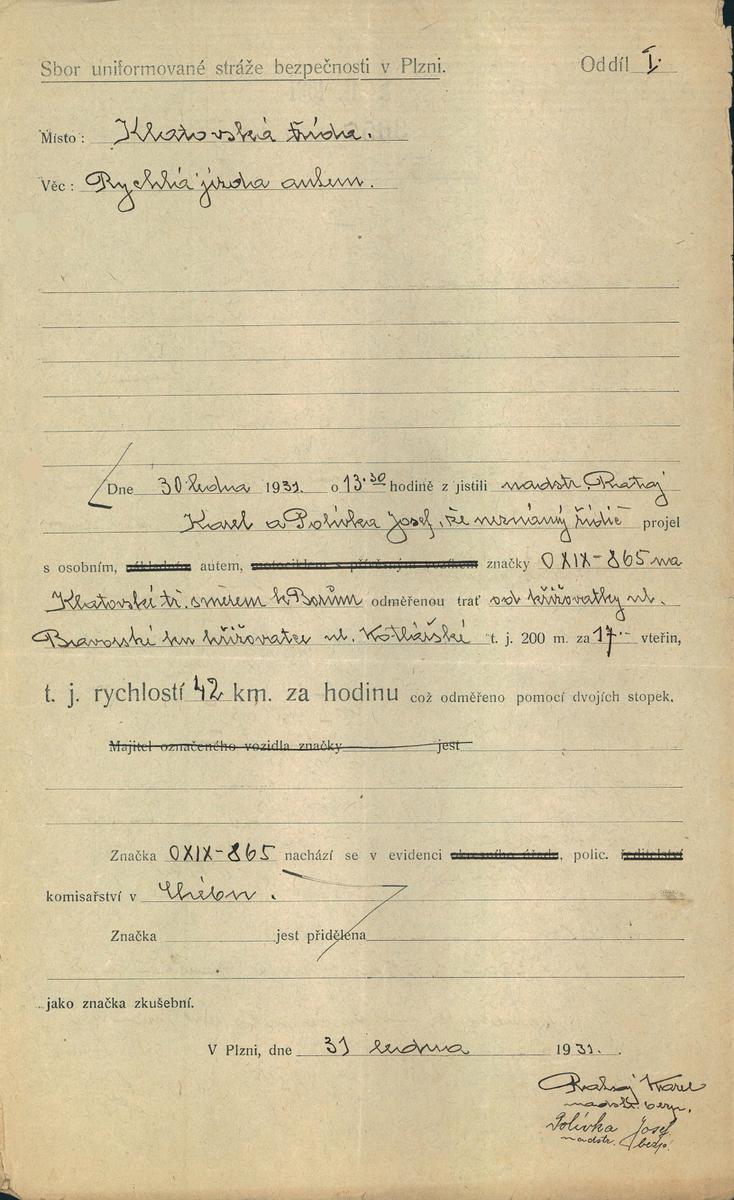 Sbor uniformované stráže bezpečnosti v Plzni. Oddíl I.
Místo: Klatovská třída.
Věc: Rychlá jízda autem.
Dne 30 ledna 1931. o 13·30 hodině zjistili nadstr. Rataj
Karel a Polívka Josef, že neznámý řidič projel
s osobním, autem, značky OXIX-865 na
Klatovské tř. směrem k Borům odměřenou trať od křižovatky ul.
Bavorské ku křižovatce ul. Kotlářské t. j. 200 m. za 17·- vteřin,
t. j. rychlostí 42 km. za hodinu což odměřeno pomocí dvojích stopek.
Majitel označeného vozidla značky jest
Značka OXIX-865 nachází se v evidenci , polic. ředitelství
komisařství v Chebu.
Značka jest přidělena
jako značka zkušební.
V Plzni, dne 31 ledna 1931.
Rataj Karel
nadstr. bezp.
Polívka Josef
nadstr. bezp.